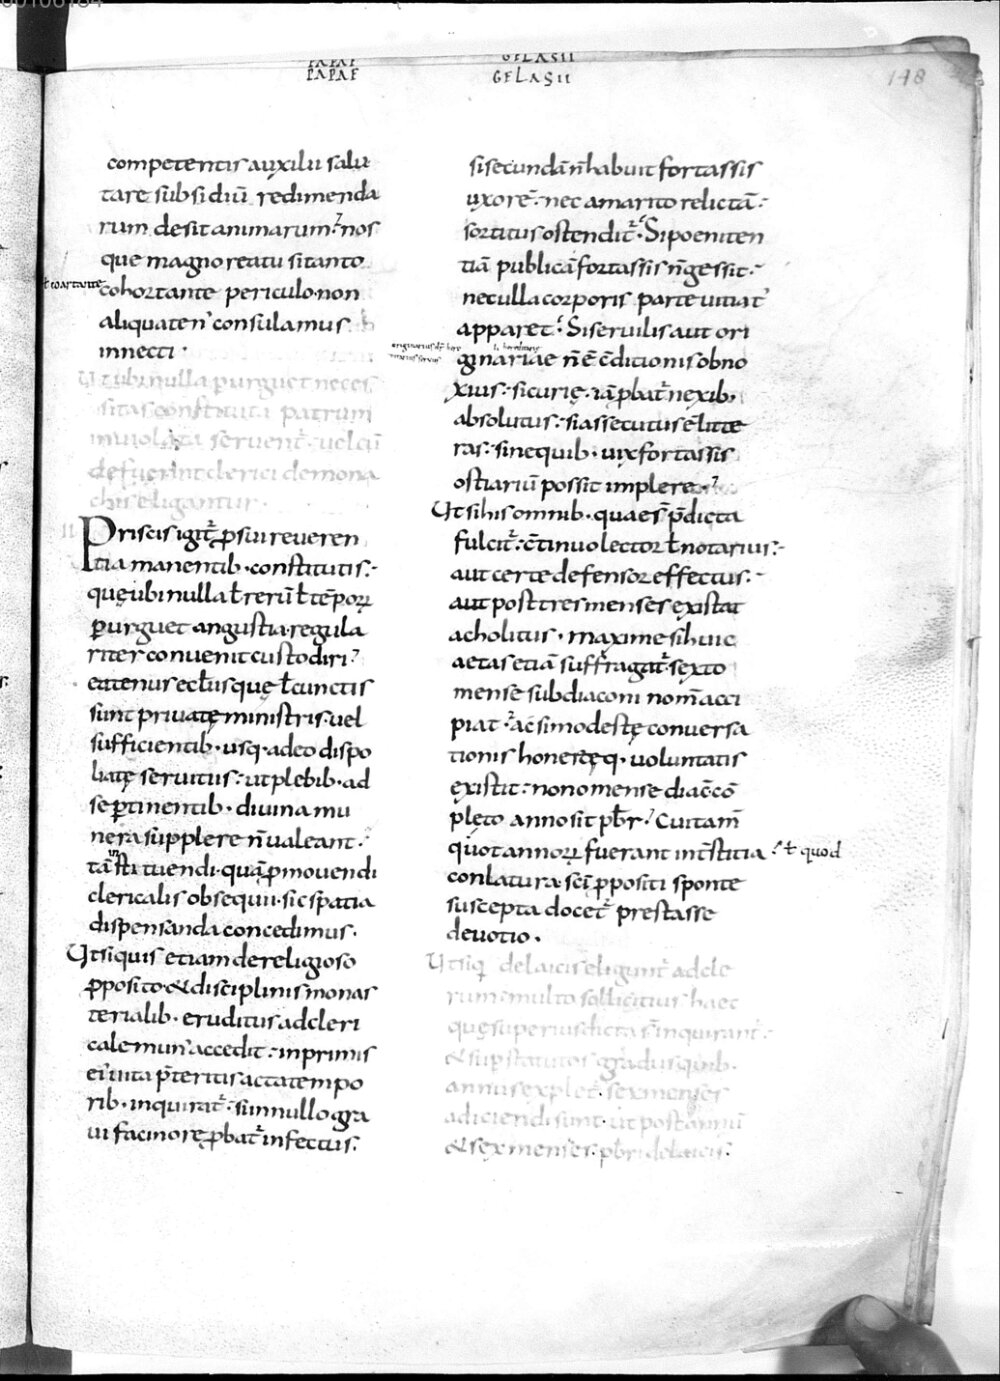 PAPAE GELASII
148
competentis auxilii salu
tare subsidiū redimenda
rum desit animarum· nos
que magno reatu si tanto
ł coartante
cohortante periculo· non
aliquaten' consulamus
innecti·
Ut ubi nulla purguet neces
sitas constituta patrum
inuiolata seruent̄· uel cū
defuerint clerici de mona
chis eligantur·
II
Priscis igit̄ ꝓ sui reueren
tia manentib· constitutis·
quę ubi nulla ł rerū ł tēporꝝ
ꝑurguet angustia· regula
riter conuenit custodiri·
eatenus ecłis quę ł cunctis
sunt priuatę ministris· uel
sufficientib· usq· adeo dispo
liatę seruitiis· ut plebib· ad
se ꝑtinentib· diuina mu
nera supplere n̄ ualeant·
tā īstituendi· quā ꝓmouendi
clericalis obsequii· sic spatia
dispensanda concedimus·
Ut si quis etiam de religioso
ꝓposito & disciplinis monas
terialib· eruditus ad cleri
cale mun' accedit· inprimis
ei' uita p̄teritis acta tempo
rib· inquirat̄· si nullo gra
ui facinore ꝓbat̄ infectus·
si secundā n̄ habuit fortassis
uxorē· nec a marito relictā·
sortitus ostendit̄· Si poeniten
tiā publicā fortassis n̄ gessit·
nec ulla corporis parte uitiat'
apparet· Si seruilis aut ori
ginariae n̄ ē c̄ditionis obno
xius· si curię· iā ꝓbat̄ nexib·
absolutus· si assecutus ē litte
ras· sine quib· uix fortassis
ostiariū possit implere·
Ut si his omnib· quae s̄ p̄dicta
fulcit̄· c̄tinuo lector ł notarius·
aut certe defensor effectus·
aut post tres menses existat
acholitus· maxime si huic
aetas etiā suffragat̄· sexto
mense subdiaconi nom̄ acci
piat· ac si modestę conuersa
tionis honestęq· uoluntatis
existit· nono mense diac̄ cō
pleto anno sit pb̄r· Cui tam̄
quot annorꝝ fuerant int̄stitia
ł quod
conlatura sc̄i ꝓpositi sponte
suscepta docet̄ prestasse
deuotio·
Ut siq' de laicis eligunt̄ ad cle
rum multo sollicitius haec
quę superius dicta s̄ inquirant̄·
& sup statutos gradus quib·
annus explet̄· sex menses
adiciendi sunt· ut post annū
& sex menses· pb̄ri de laicis·